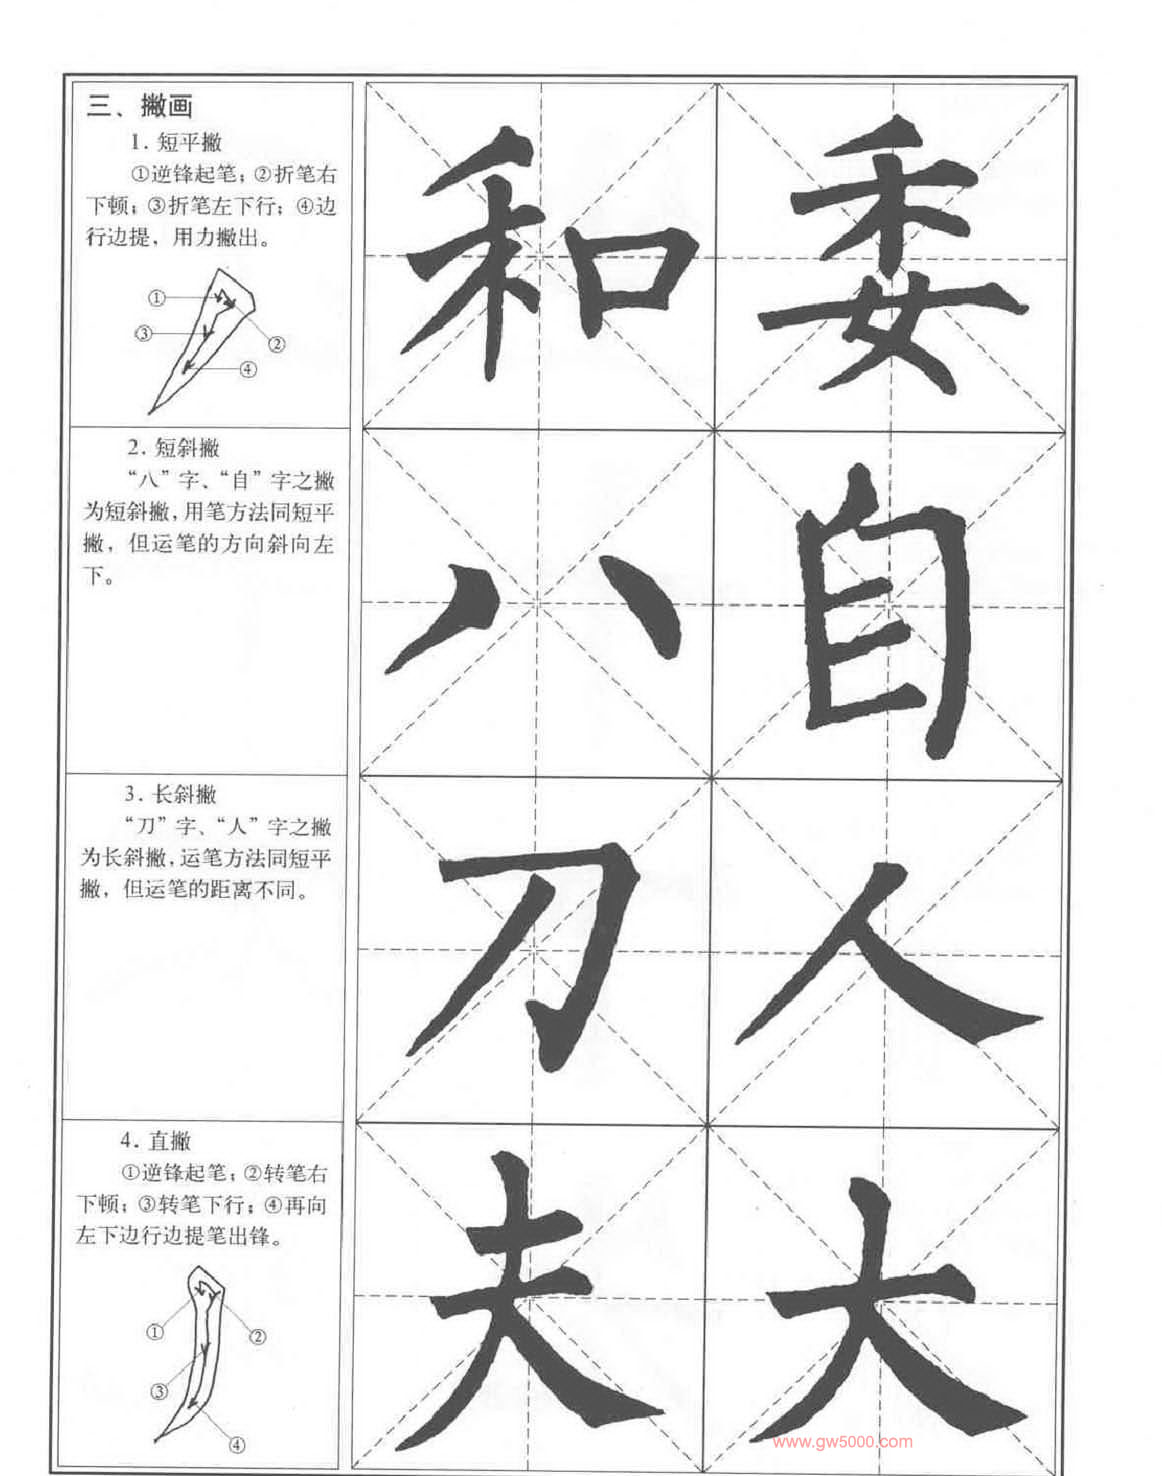 三、撇画
1. 短平撇
①逆锋起笔；②折笔右
下顿；③折笔左下行；④边
行边提，用力撇出。
①
③
②
④
和 委
2. 短斜撇
“八”字、“自”字之撇
为短斜撇，用笔方法同短平
撇，但运笔的方向斜向左
下。
八 自
3. 长斜撇
“刀”字、“人”字之撇
为长斜撇，运笔方法同短平
撇，但运笔的距离不同。
刀 人
4. 直撇
①逆锋起笔；②转笔右
下顿；③转笔下行；④再向
左下边行边提笔出锋。
①
②
③
④
夫 大
www.gw5000.com